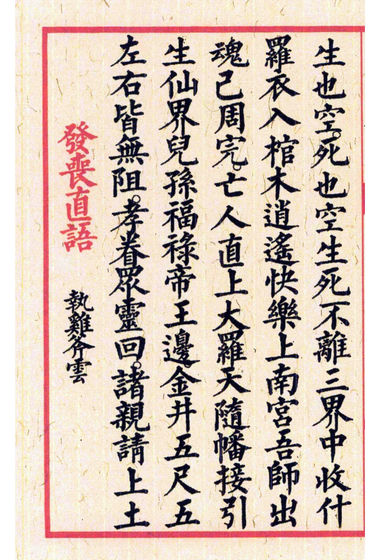 生也空。死也空生死不離三界中收什
羅衣入棺木逍遙快樂上南宮吾師出
魂已周完。亡人直上大羅天隨幡接引
生仙界兒孫福祿帝王邊。金井五尺五
左右皆無阻。孝眷眾靈回。諸親請上土
發喪直語
執雞斧雲